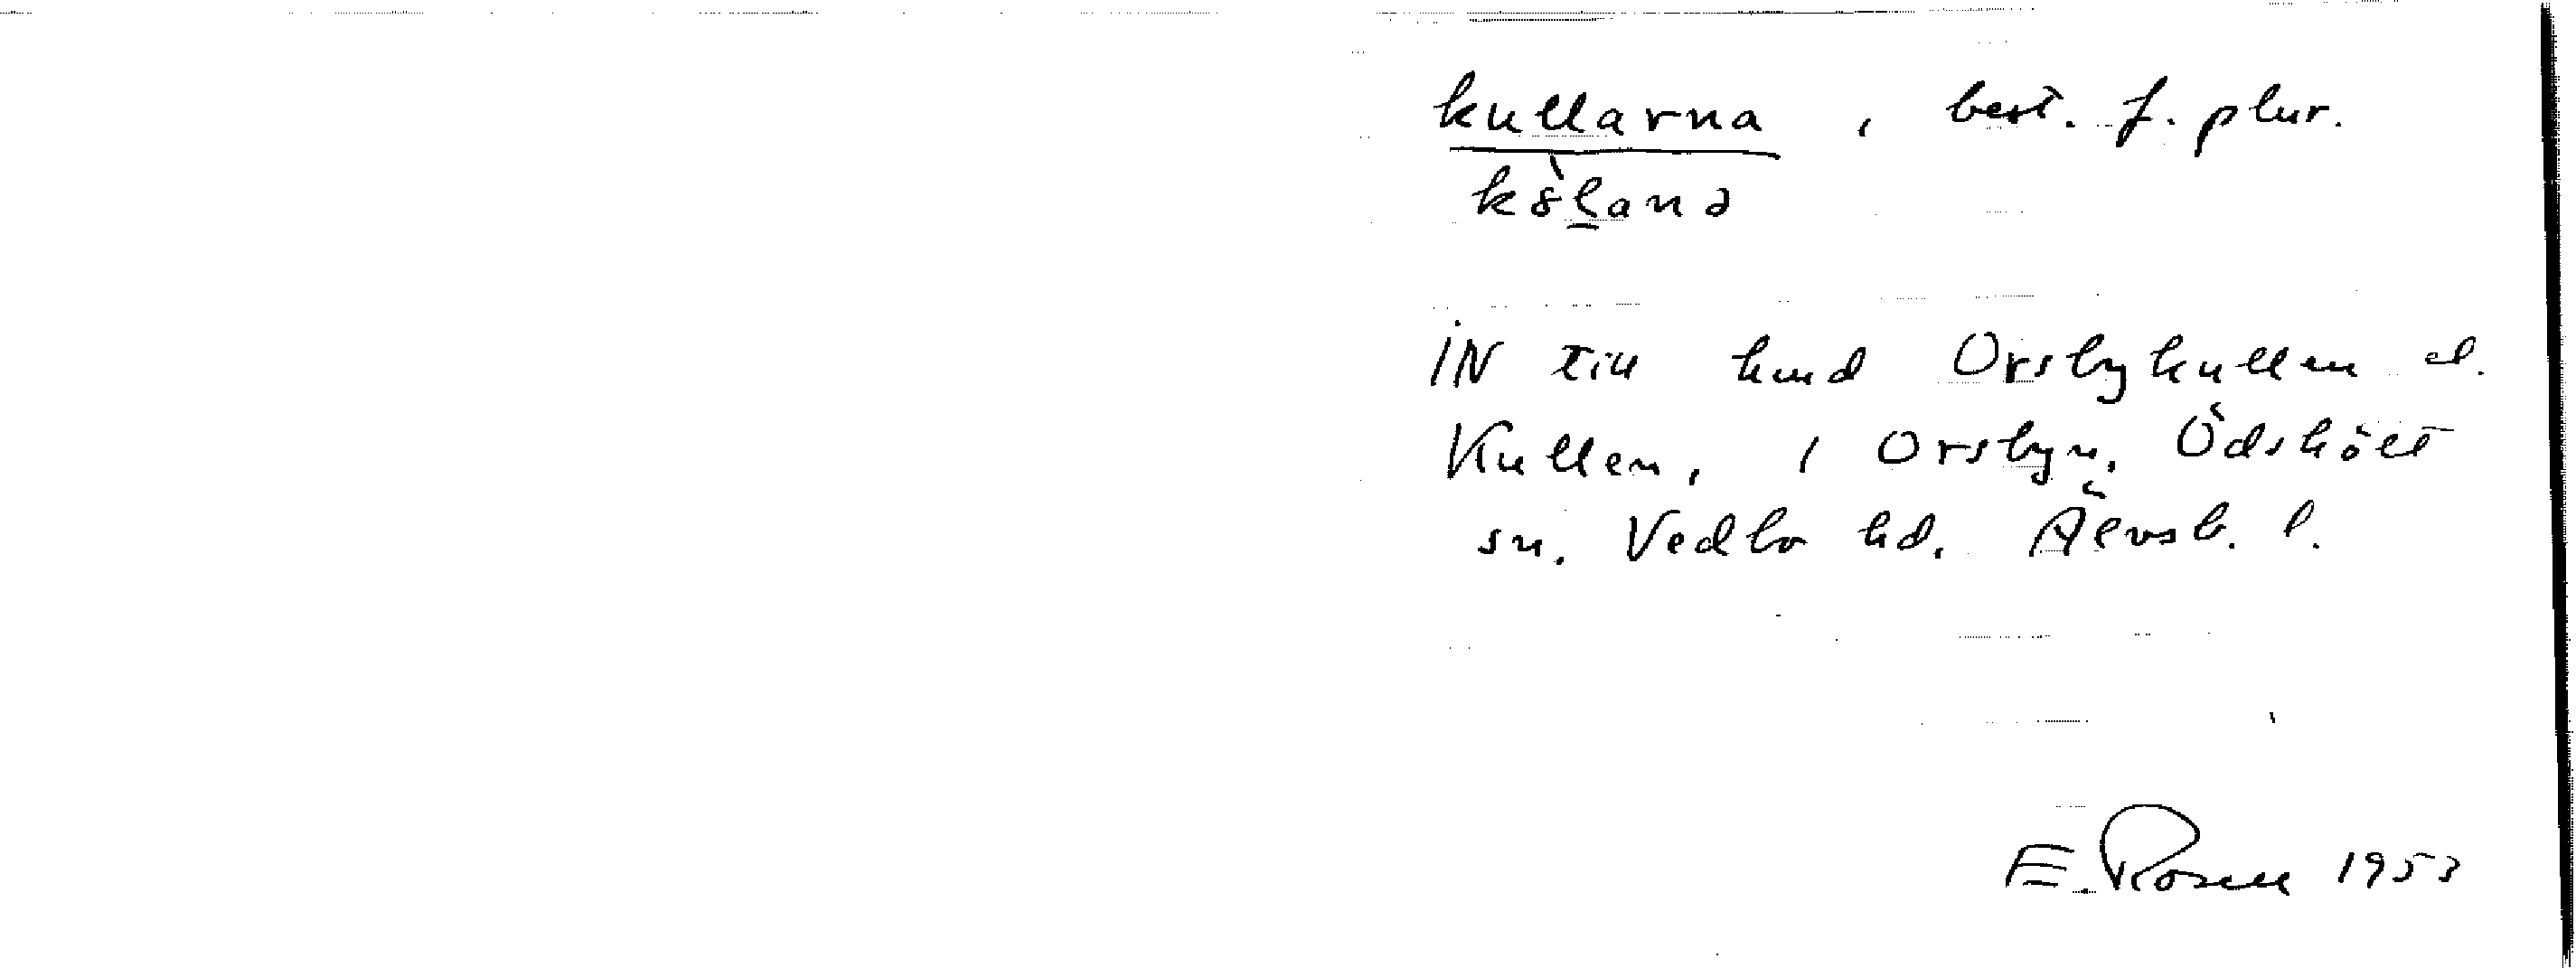 kullarna, best. f. plur.
IN till hmd Orsbykullen el.
Kullen, i Orsbyn, Ödskölt
sn. Vedbo hd. Älvsb. l.
E. Rosell 1953